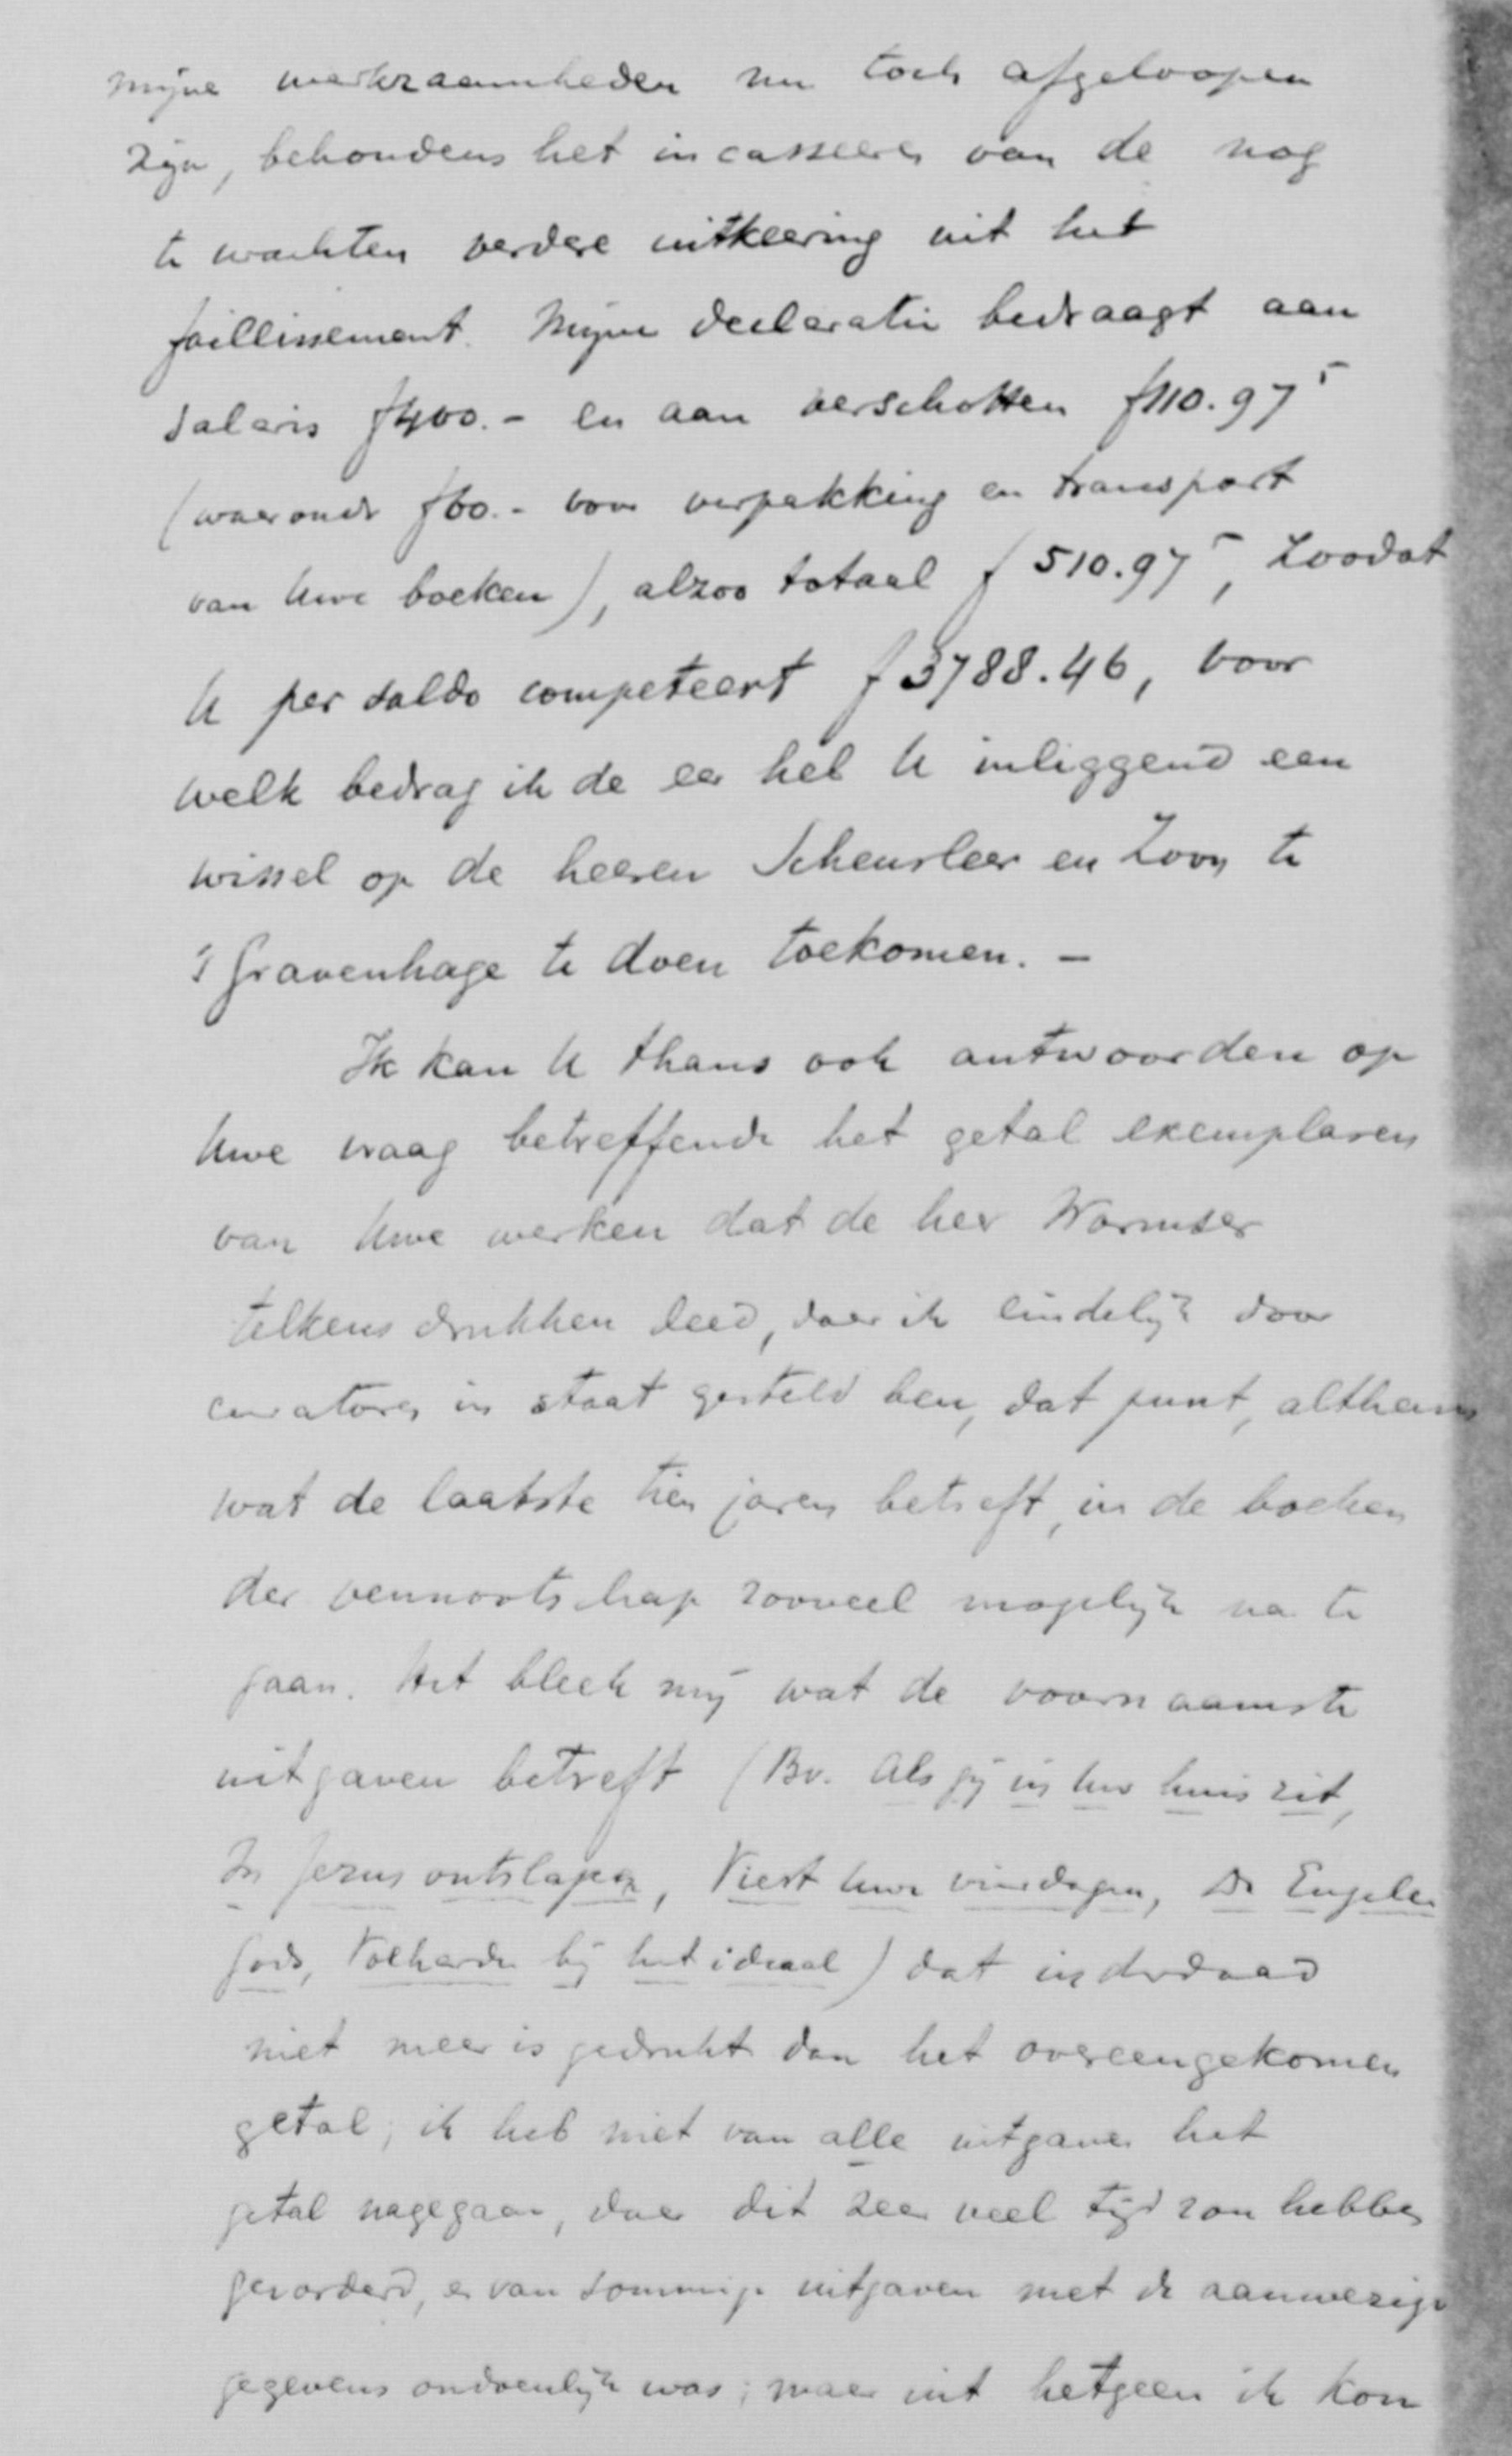 mijne werkzaamheden nu toch afgeloopen
zijn, behoudens het incasseeren van de nog
te wachten verdere uitkeering uit het
faillissement. Mijne declaratie bedraagt aan
salaris f400.- en aan verschotten f110.97⁵
(waaronder f60.- voor verpakking en transport
van Uwe boeken), alzoo totaal f 510.97⁵, zoodat
U per saldo competeert f 3788.46, voor
welk bedrag ik de eer heb U inliggend een
wissel op de heeren Scheurleer en Zoon te
's Gravenhage te doen toekomen. -
Ik kan U thans ook antwoorden op
Uwe vraag betreffende het getal exemplaren
van Uwe werken dat de heer Wormser
telkens drukken deed, daar ik eindelijk door
curatoren in staat gesteld ben, dat punt, althans
wat de laatste tien jaren betreft, in de boeken
der vennootschap zooveel mogelijk na te
gaan. Het bleek mij wat de voornaamste
uitgaven betreft (Bv. Als gij in Uw huis zit,
In Jezus ontslapen, Viert Uwe vierdagen, De Engelen
Gods, Volharden bij het ideaal) dat inderdaad
niet meer is gedrukt dan het overeengekomen
getal; ik heb niet van alle uitgaven het
getal nagegaan, daar dit zeer veel tijd zou hebben
gevorderd, en van sommige uitgaven met de aanwezige
gegevens ondoenlijk was; maar uit hetgeen ik kon